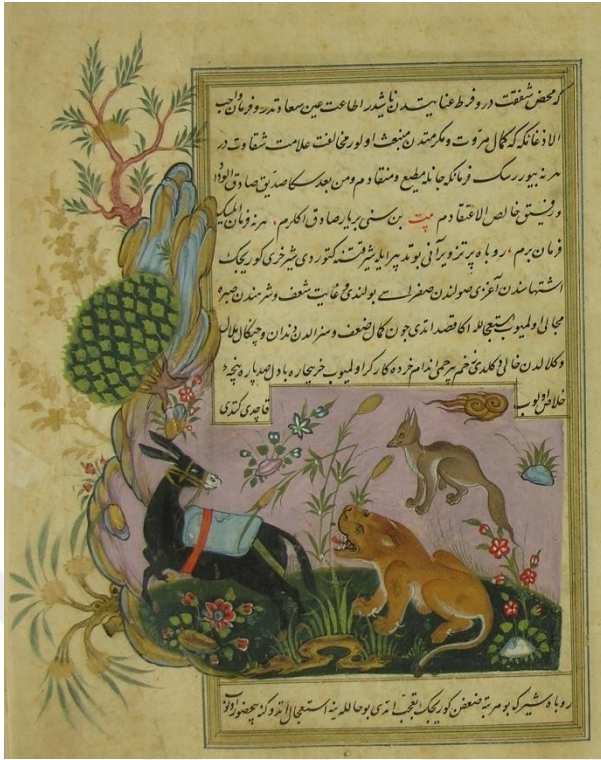 که محض شفقت در و فرط عنایتدن ناشیدر اطاعت عین سعادتدر و فرمان واجب
الاذعانکه که کمال مروّت و مکرمتدن منبعث اولور مخالفت علامت شقاوت در
هر نه بیوررسک فرمانکه جانله مطیع و منقادم و من بعد سکا صدیق صادق الوداد
و رفیق خالص الاعتقادم بیت بن سنی بر یار صادق اکلرم ، هر نه فرمان ایلسک
فرمان برم ، روباه پر تزویر آنی بو تدبیر ایله شیر قتنه کتوردی شیر خری کوریجک
اشتهاسندن آغزی صولندی صفراسی بولندی و غایت شعف و شرهندن صبره
مجالی اولمیوب استعجالله اکا قصد اتدی چون کمال ضعف دندان و چنکال ملال
و کلالدن خالی دکلدی زخم اندام خرده کارکر اولمیوب خر بیچاره بادل صدپاره
خلاص اولوب قاچدی کتدی
روباه شیرک بو مرتبه ضعفن کوریجک تعجّب اتدی بو حالله ینه استعجال اتدوکنه بیحضور اولوب